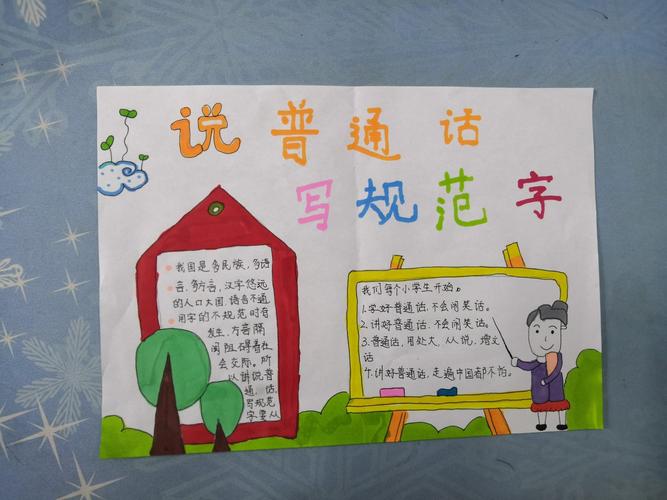 说普通话
写规范字
我国是多民族，多语
言，多方言，汉字悠远
的人口大国，语言不通
用字的不规范时有
发生，方言隔
阂阻碍着社
会交际。所
以讲说普
通话，
写规范
字要从
我们每个小学生开始。
1.学好普通话，不会闹笑话。
2.讲好普通话，不会闹笑话。
3.普通话，用处大，从说，增文
话
4.讲好普通话，走遍中国都不怕。